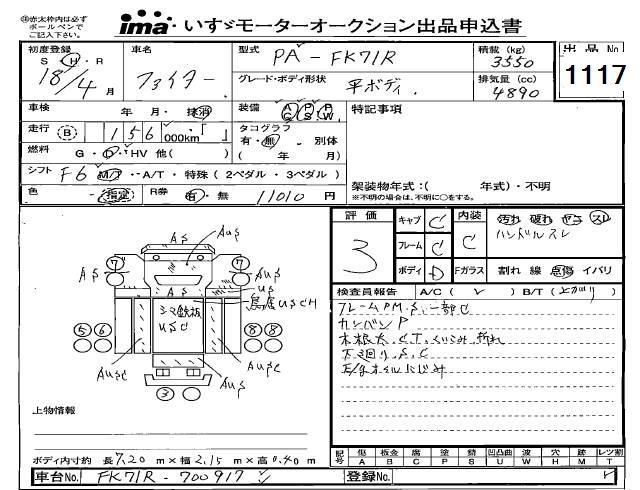 ㊟赤太枠内は必ず
ボールペンで
ご記入下さい。
ima いすゞモーターオークション出品申込書
初度登録
S・H・R
18/4月
車名
ファイター
型式
PA-FK71R
積載 (kg)
3550
出品No
1117
グレード・ボディ形状
平ボディ.
排気量 (cc)
4890
車検
年 月・抹消
装備
A/C P/S P/W
特記事項
走行 B 156,000km・「 」
タコグラフ
有・無・別体
( 年 月)
燃料
G・D・HV 他( )
シフト F6 M/T・A/T・特殊(2ペダル・3ペダル)
架装物年式:( 年式)・不明
※不明の場合は、不明に○をする。
色 指定 R券 有・無 11010円
評価
3
キャブ C
フレーム C
ボディ D
内装
C
汚れ 破れ ヤニ スレ
ハンドルスレ
Fガラス 割れ 線 点傷 イバリ
検査員報告 A/C( ✓ ) B/T( 上がり )
フレームPM.S.一部C
カンバンP
木根太.C.T.くいこみ.折れ
下廻り.S.C
E/gオイルにじみ
AS
AuS
7
7
AS
AS
us
us
鳥居uSCH
シマ鉄板
uSC
5 6
8 8
AuSC
AuS
AuS
3
上物情報
ボディ内寸約 長7.20m×幅2.15m×高0.40m
記号 傷A 板金B 腐C 塗P 錆S 凹凸曲U 波W 穴H 跡M レツ割T
車台No. FK71R-700917
登録No.